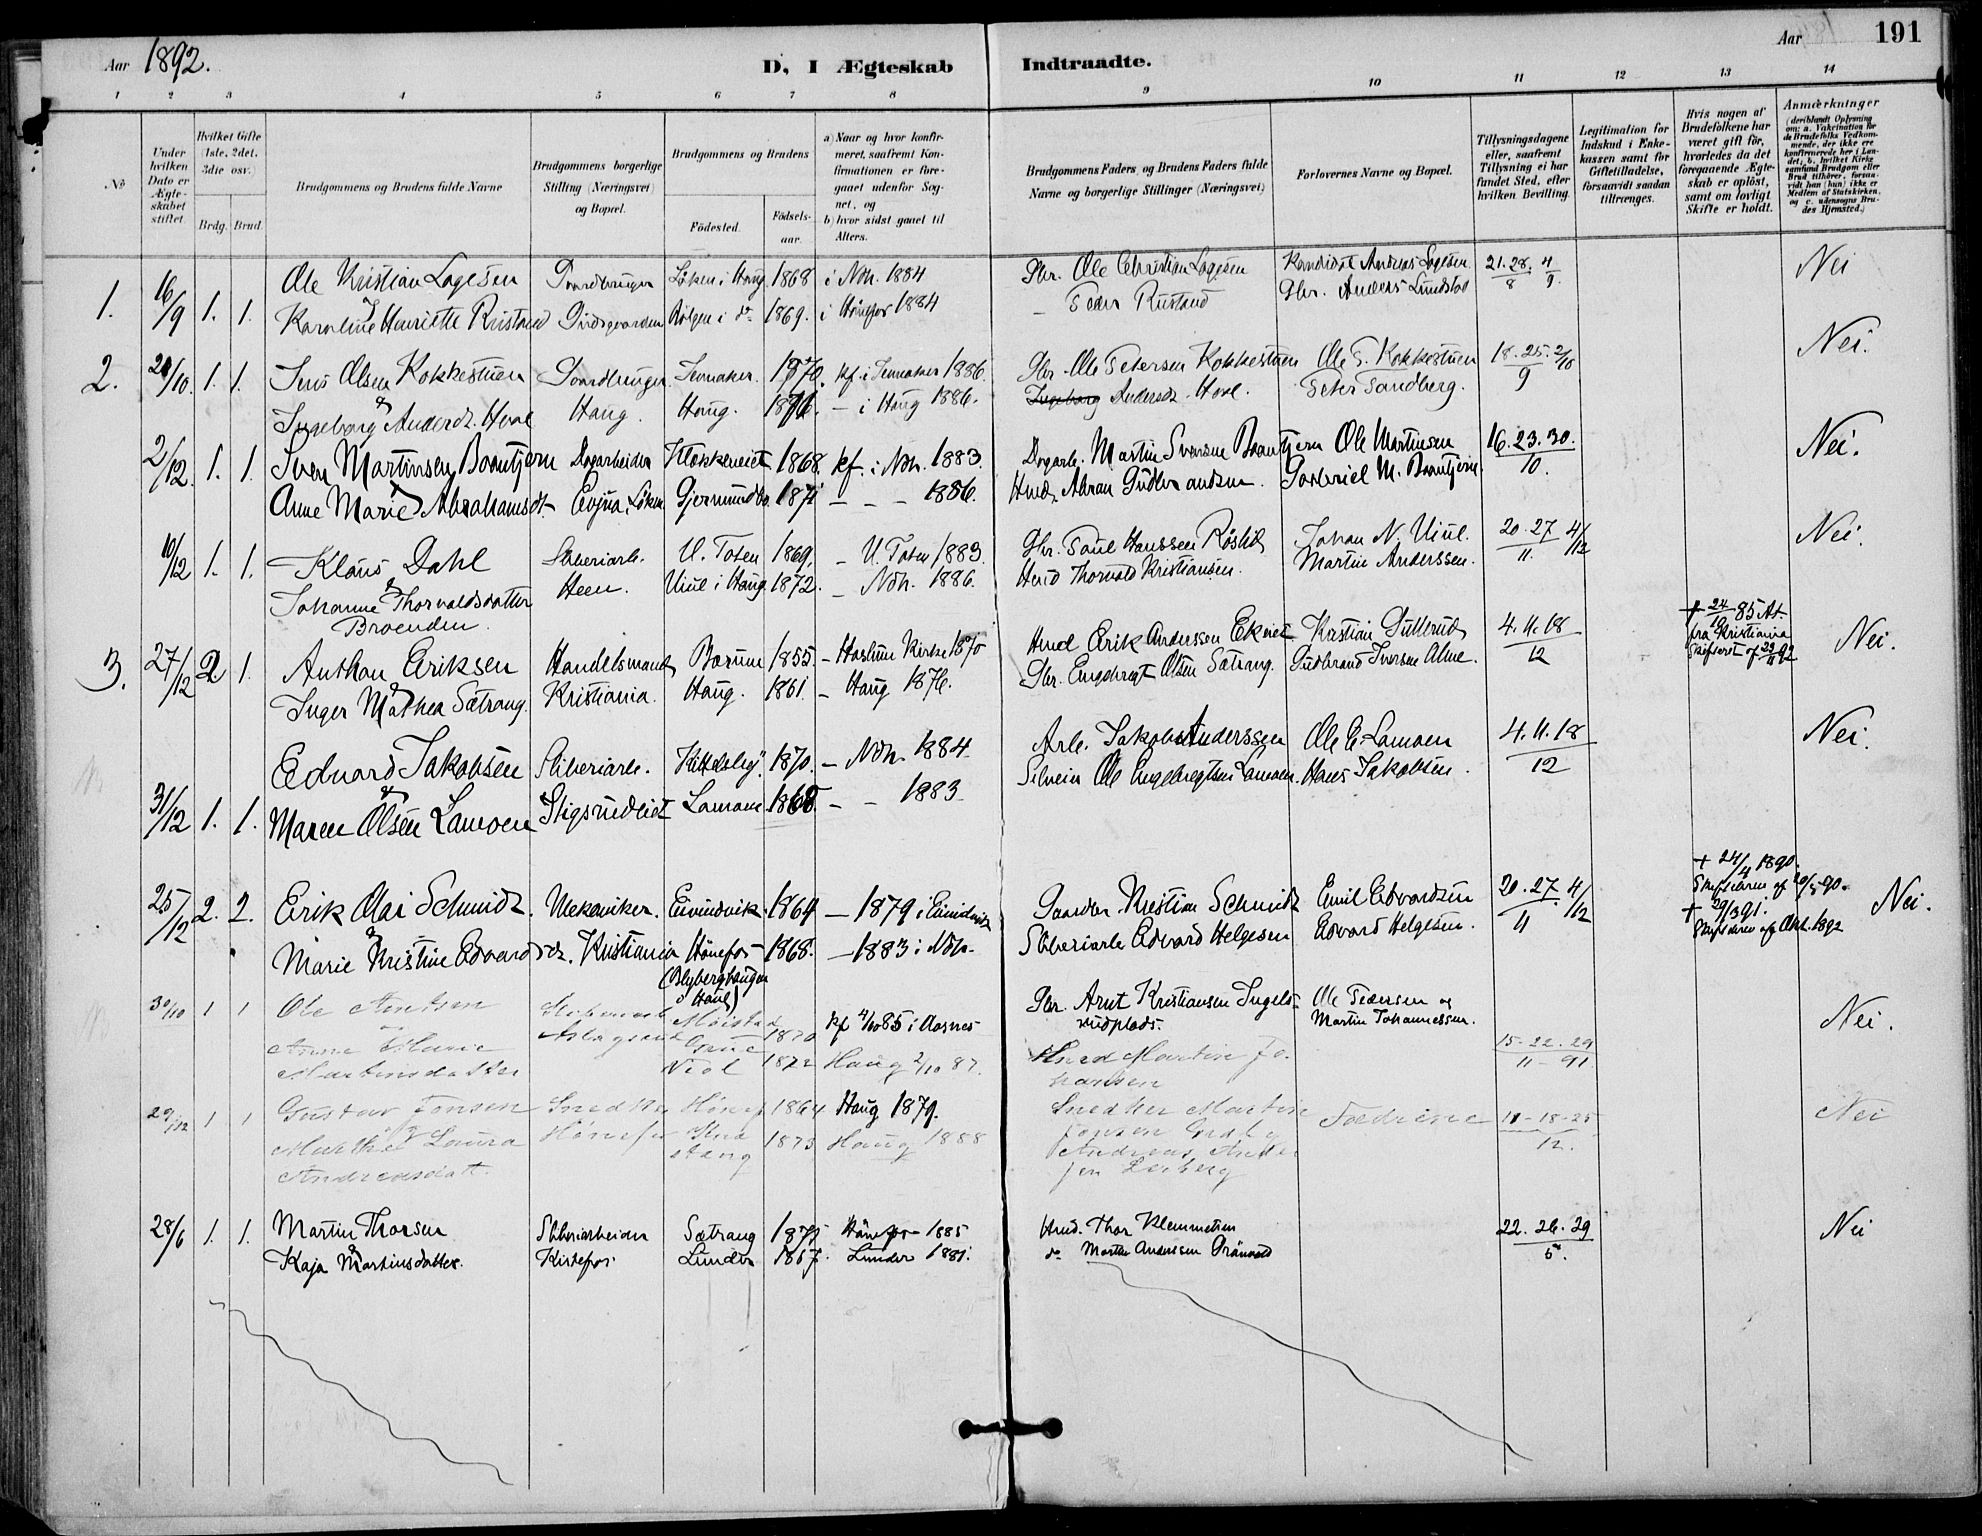 Aar 1892.
D, I Ægteskab Indtraadte.
Aar 191
1 2 3 4 5 6 7 8 9 10 11 12 13 14
No
Under hvilken Dato er Ægteskabet stiftet.
Hvilket Gifte (1ste, 2det, 3die osv.)
Brdg. Brud.
Brudgommens og Brudens fulde Navne
Brudgommens borgerlige Stilling (Næringsvei) og Bopæl.
Brudgommens og Brudens
Fødested. Fødselsaar.
a) Naar og hvor konfirmeret, saafremt Konfirmationen er foregaaet udenfor Sognet, og
b) hvor sidst gaaet til Alters.
Brudgommens Faders og Brudens Faders fulde Navne og borgerlige Stillinger (Næringsvei)
Forlovernes Navne og Bopæl.
Tillysningsdagene eller, saafremt Tillysning ei har fundet Sted, efter hvilken Bevilling.
Legitimation for Indskud i Enkekassen samt for Giftetilladelse, forsaavidt saadan tiltrænges.
Hvis nogen af Brudefolkene har været gift før, hvorledes da det foregaaende Ægteskab er opløst, samt om lovligt Skifte er holdt.
Anmærkninger (deriblandt Oplysning om: a. Vakcination for de Brudefolks Vedkommende, der ikke ere konfirmerede her i Landet; b. hvilket Kirkesamfund Brudgom eller Brud tilhører, forsaavidt han (hun) ikke er Medlem af Statskirken, og c. udensogns Brudes Hjemsted.)
1. 16/9 1. 1. Ole Kristian Lagesen Gaardbruger Løken i Haug 1868 i Ndh. 1884 Gbr. Ole Christian Lagesen Kandidat Andreas Lagesen 21.28. 4 / 8 9 Nei
& Karoline Henriette Rustand 1869. i Hønefos 1884 – Peder Rustand Gbr. Anders Lundstad
2. 1. 1. Jens Olsen Kokkestuen Gaardbruger Jevnaker. 1870. kf. i Jevnaker 1886. Gbr. Ole Petersen Kokkestuen Ole P. Kokkestuen 18.25. 2/10 / 9 Nei.
& Ingeborg Andersdr. Hval Haug. Haug. – i Haug 1886. Ingeborg Andersdr. Hval. Peter Sandberg.
2/12. 1. 1. Sven Martinsen Baantjern Dagarbeider Klokkereiet 1868. kf. i Ndh. 1883. Dagarb. Martin Svensen Baantjern Ole Martinsen 16.23.30. / 10. Nei.
& Anne Marie Abrahamsdt. Gjermundbo. 1871 – – – 1886. Gabriel M. Baantjern
10/12 1. 1. Klaus Dahl Sliberiarb. V. Toten 1869. – V. Toten 1883. Gbr. Paul Hanssen Johan N. Viul. 20.27 4/12 / 11. Nei.
& Johanne Thorvaldsdatter Heen. Viul i Haug. 1872. – Ndh. 1886. Hmd Thorvald Kristiansen. Martin Anderssen.
Braenden.
3. 27/12 2 1. Anthon Eriksen Handelsmand Bærum 1855. – Haslum Kirke 1870 Hmd Erik Anderssen Ekeiet Kristian Gullerud 4.11.18 / 12 + 24/10 85 At. fra Kristiania Skifteret af 29/11 92 Nei.
& Inger Mathea Sætrang. Kristiania. Haug. 1861. – Haug 1876. Gbr. Engebregt Olsen Sætrang. Gudbrand Iversen Alme.
31/12 1. 1. Edvard Jakobsen Sliberiarb. Kittelsby. 1870. – Ndh. 1884 Arb. Jakob Anderssen Ole E. Lamoen 4.11.18 / 12 Nei.
& Maren Olsen Lamoen Stigsrudeiet Lamoen – – 1883 Ole Engebregtsen Lamoen. Hans Jakobsen.
25/12 2. 2. Erik Olai Schmidt. Mekaniker. Eivindvik. 1864 – 1879 i Eivindvik Gaardbr. Kristian Schmidt Emil Edvardsen 20.27 4/12 / 11 + 24/4 1890. Nei.
& Marie Kristine Edvardsdr. Kristiania Hønefos 1868. – 1883 i Ndh. Sliberiarb Edvard Helgesen Edvard Helgesen. + 29/3 91.
Okt. 1892
30/10 1 1 Ole Arntsen Møistad 1870 kf 4/10 85 i Aasnes Gbr. Arnt Kristiansen Ingelsrudplads. Ole Pedersen og Martin Johannessen. 15-22-29 / 11-91 Nei.
& Anne Marie Martinsdatter Grue Viol 1872 Haug 2/10 87. Martin Johansen
29/12 1 1 Gustav Jonsen Snedker Hønef 1864 Haug 1879. Snedker Martin Jonsen Fædrene 11-18-25 / 12. Nei
& Marthe Laura Andreasdatt. Hønefos Haug 1873 Haug 1888 Andreas
28/6 1. 1. Martin Thorsen Sliberiarbeider Sætrang 1871 Hønefos 1885 Hmd. Thor Klemmetsen 22.26.29 / 5. Nei
& Kaja Martinsdatter. Kistefos Lunder 1867. Lunder 1881. do Morten Anderssen Grønvold